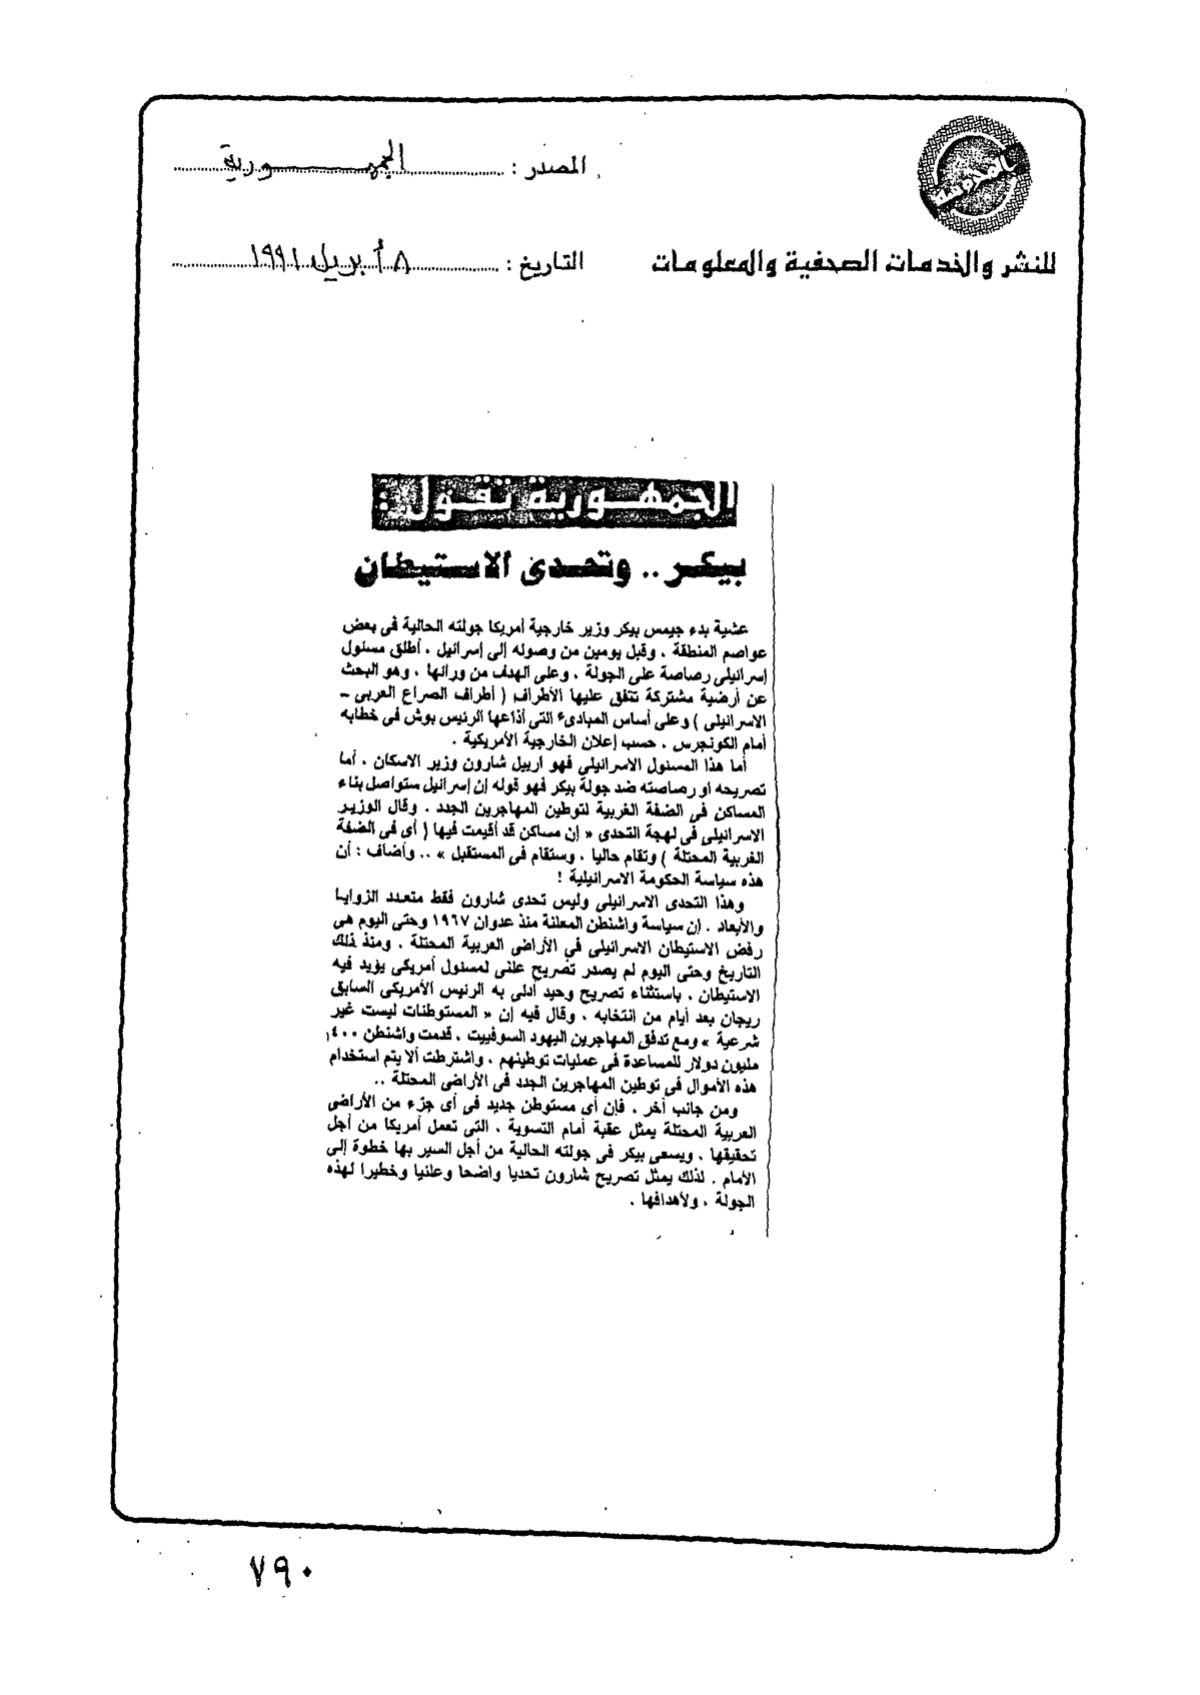 المصدر : الجمهورية
للنشر والخدمات الصحفية والمعلومات
التاريخ : ٨ أبريل ١٩٩١
الجمهورية تقول :
بيكر .. وتحدى الاستيطان
عشية بدء جيمس بيكر وزير خارجية أمريكا جولته الحالية فى بعض
عواصم المنطقة ، وقبل يومين من وصوله إلى إسرائيل ، أطلق مسئول
إسرائيلى رصاصة على الجولة ، وعلى الهدف من ورائها ، وهو البحث
عن أرضية مشتركة تتفق عليها الأطراف ( أطراف الصراع العربى -
الاسرائيلى ) وعلى أساس المبادىء التى أذاعها الرئيس بوش فى خطابه
أمام الكونجرس ، حسب إعلان الخارجية الأمريكية .
أما هذا المسئول الاسرائيلى فهو ارييل شارون وزير الاسكان ، أما
تصريحه او رصاصته ضد جولة بيكر فهو قوله إن إسرائيل ستواصل بناء
المساكن فى الضفة الغربية لتوطين المهاجرين الجدد . وقال الوزير
الاسرائيلى فى لهجة التحدى « إن مساكن قد أقيمت فيها ( أى فى الضفة
الغربية المحتلة ) وتقام حاليا ، وستقام فى المستقبل » .. وأضاف : أن
هذه سياسة الحكومة الاسرائيلية !
وهذا التحدى الاسرائيلى وليس تحدى شارون فقط متعدد الزوايا
والأبعاد . إن سياسة واشنطن المعلنة منذ عدوان ١٩٦٧ وحتى اليوم هى
رفض الاستيطان الاسرائيلى فى الأراضى العربية المحتلة . ومنذ ذلك
التاريخ وحتى اليوم لم يصدر تصريح علنى لمسئول أمريكى يؤيد فيه
الاستيطان . باستثناء تصريح وحيد أدلى به الرئيس الأمريكى السابق
ريجان بعد أيام من انتخابه ، وقال فيه إن « المستوطنات ليست غير
شرعية » ومع تدفق المهاجرين اليهود السوفييت ، قدمت واشنطن ٤٠٠
مليون دولار للمساعدة فى عمليات توطينهم ، واشترطت ألا يتم استخدام
هذه الأموال فى توطين المهاجرين الجدد فى الأراضى المحتلة ..
ومن جانب أخر ، فإن أى مستوطن جديد فى أى جزء من الأراضى
العربية المحتلة يمثل عقبة أمام التسوية ، التى تعمل أمريكا من أجل
تحقيقها ، ويسعى بيكر فى جولته الحالية من أجل السير بها خطوة إلى
الأمام . لذلك يمثل تصريح شارون تحديا واضحا وعلنيا وخطيرا لهذه
الجولة ، ولأهدافها .
٧٩٠